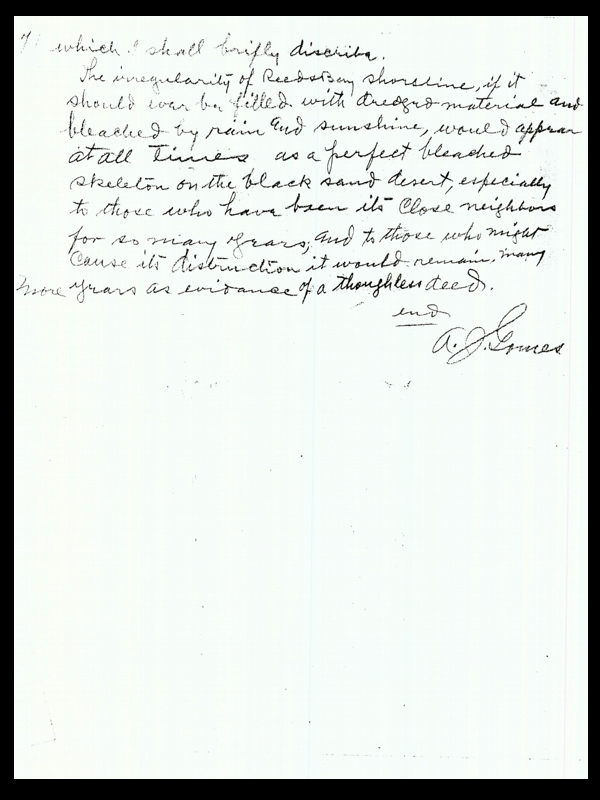 7. which I shall brifly discribe.
The irregularity of Reeds Bay shoreline, if it
should ever be filled with dredged material and
bleached by rain and sunshine, would appear
at all times as a perfect bleached
skeleton on the black sand desert, especially
to those who have been its close neighbors
for so many years, and to those who might
cause its distruction it would remain, many
more years as evidance of a thoughless deed.
end
A. J. Gomes